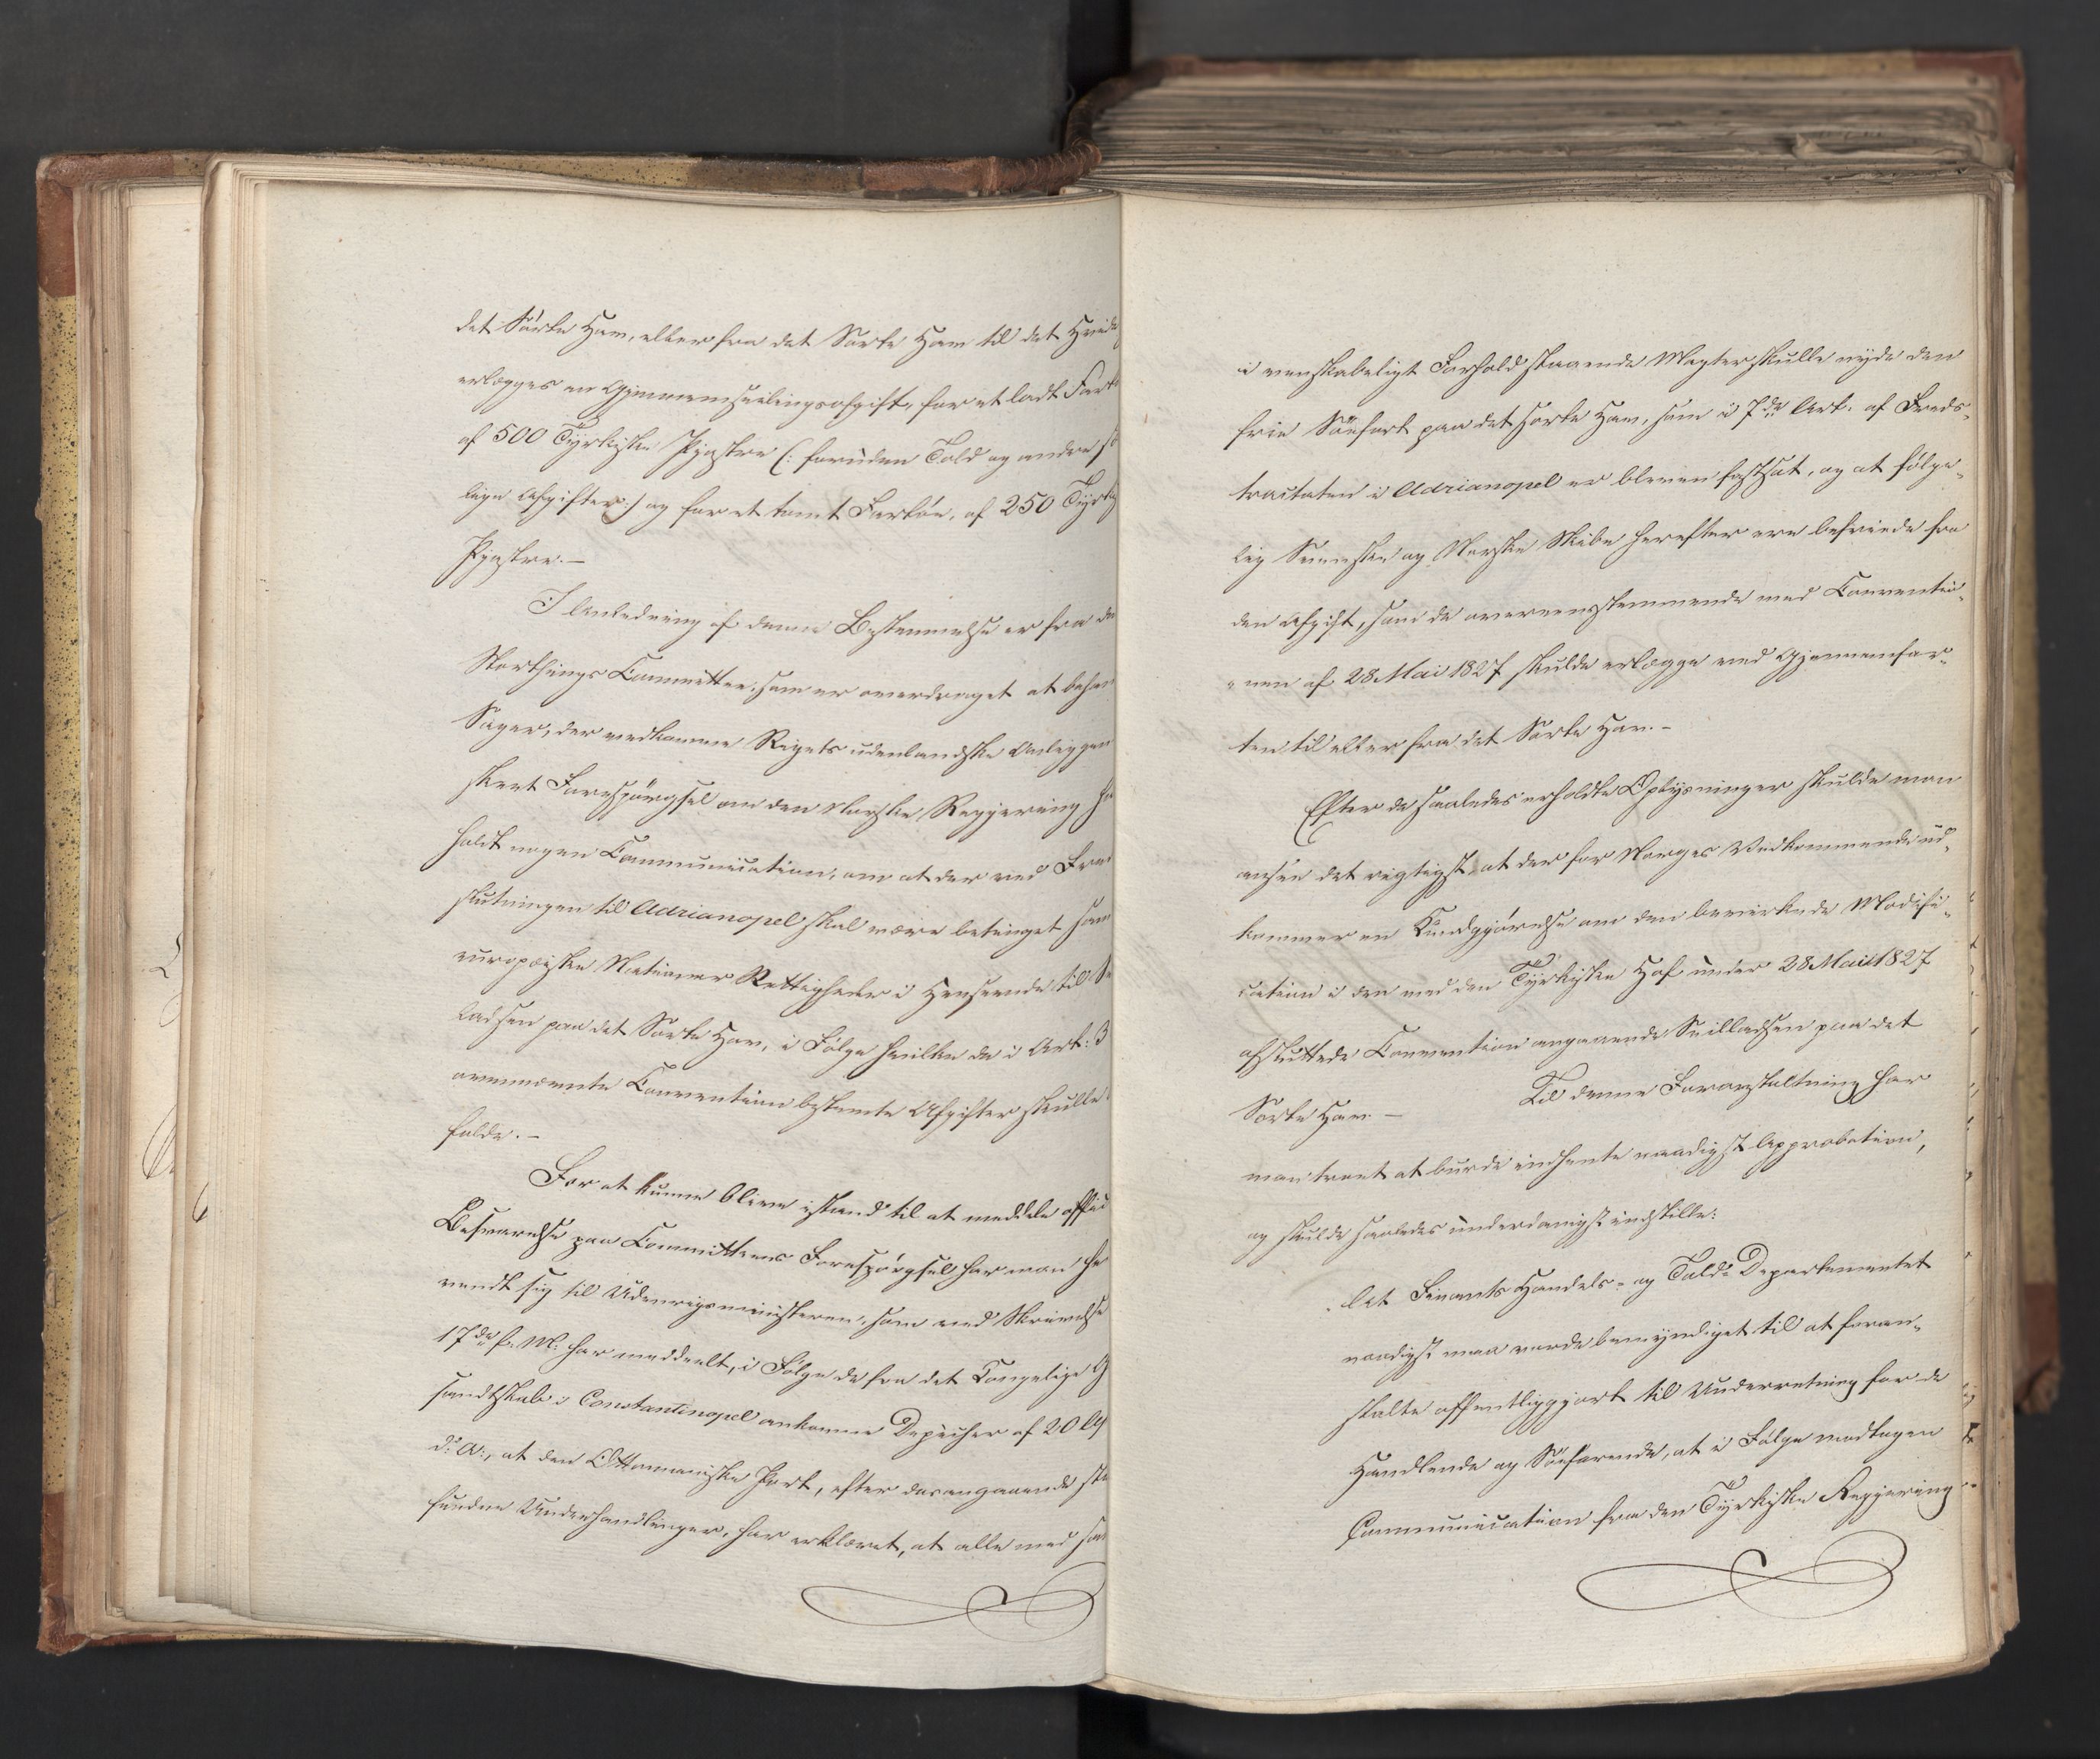 det Sorte Hav, eller fra det Sorte Hav til det Hvide
erlægges en Gjennemseilingsafgift, for et ladt Fart
af 500 Tyrkiske Pjastre (: foruden Told og andre
lige Afgifter :) og for et tomt Fartøi, af 250 Tyrk
Pjastre. –
I Anledning af denne Bestemmelse er fra den
Storthings Committee, som er overdraget at behan
Sager, der vedkomme Rigets udenlandske Anliggen
skeet Forespørgsel om den Norske Regjering
holdt nogen Communication, om at der ved Fred
slutningen til Adrianopel skal være betinget sam
europæiske Nationer Rettigheder i Henseende til Se
ladsen paa det Sorte Hav, i Følge hvilke de i Art: 3
ovennævnte Convention bestemte Afgifter skulle
falde. –
For at kunne blive istand til at meddele offici
Besvarelse paa Committeens Forespørgsel har man he
vendt sig til Udenrigsministeren, som ved Skrivelse
17de f: M: har meddeelt, i Følge de fra det Kongelige G
sandtskab i Constantinopel ankomne Depecher af 20
d: A:, at den Ottomaniske Port, efter derangaaende sted
fundne Underhandlinger, har erklæret, at alle med sam
i venskabeligt Forhold staaende Magter skulle nyde den
frie Söefart paa det sorte Hav, som i 7de Art. af Freds-
tractaten i Adrianopel er bleven fastsat, og at følge-
lig Svenske og Norske Skibe herefter ere befriede fra
den Afgift, som de overeensstemmende med Conventio-
nen af 28 Mai 1827 skulde erlægge ved Gjennemfar-
ten til eller fra det Sorte Hav. –
Efter de saaledes erholdte Oplysninger skulde man
ansee det rigtigst, at der for Norges Vedkommende ud-
kommer en Kundgjørelse om den bevirkede Modifi-
cation i den med den Tyrkiske Hof under 28 Mai 1827
afsluttede Convention angaaende Seilladsen paa det
Sorte Hav. – Til denne Foranstaltning har
man troet at burde indhente naadigst Approbation,
og skulde saaledes underdanigst indstille:
At Finants Handels- og Told-Departementet
naadigst maa vorde bemyndiget til at foran-
stalte offentliggjort til Underretning for de
Handlende og Söefarende, at i Følge modtagen
Communication fra den Tyrkiske Regjering